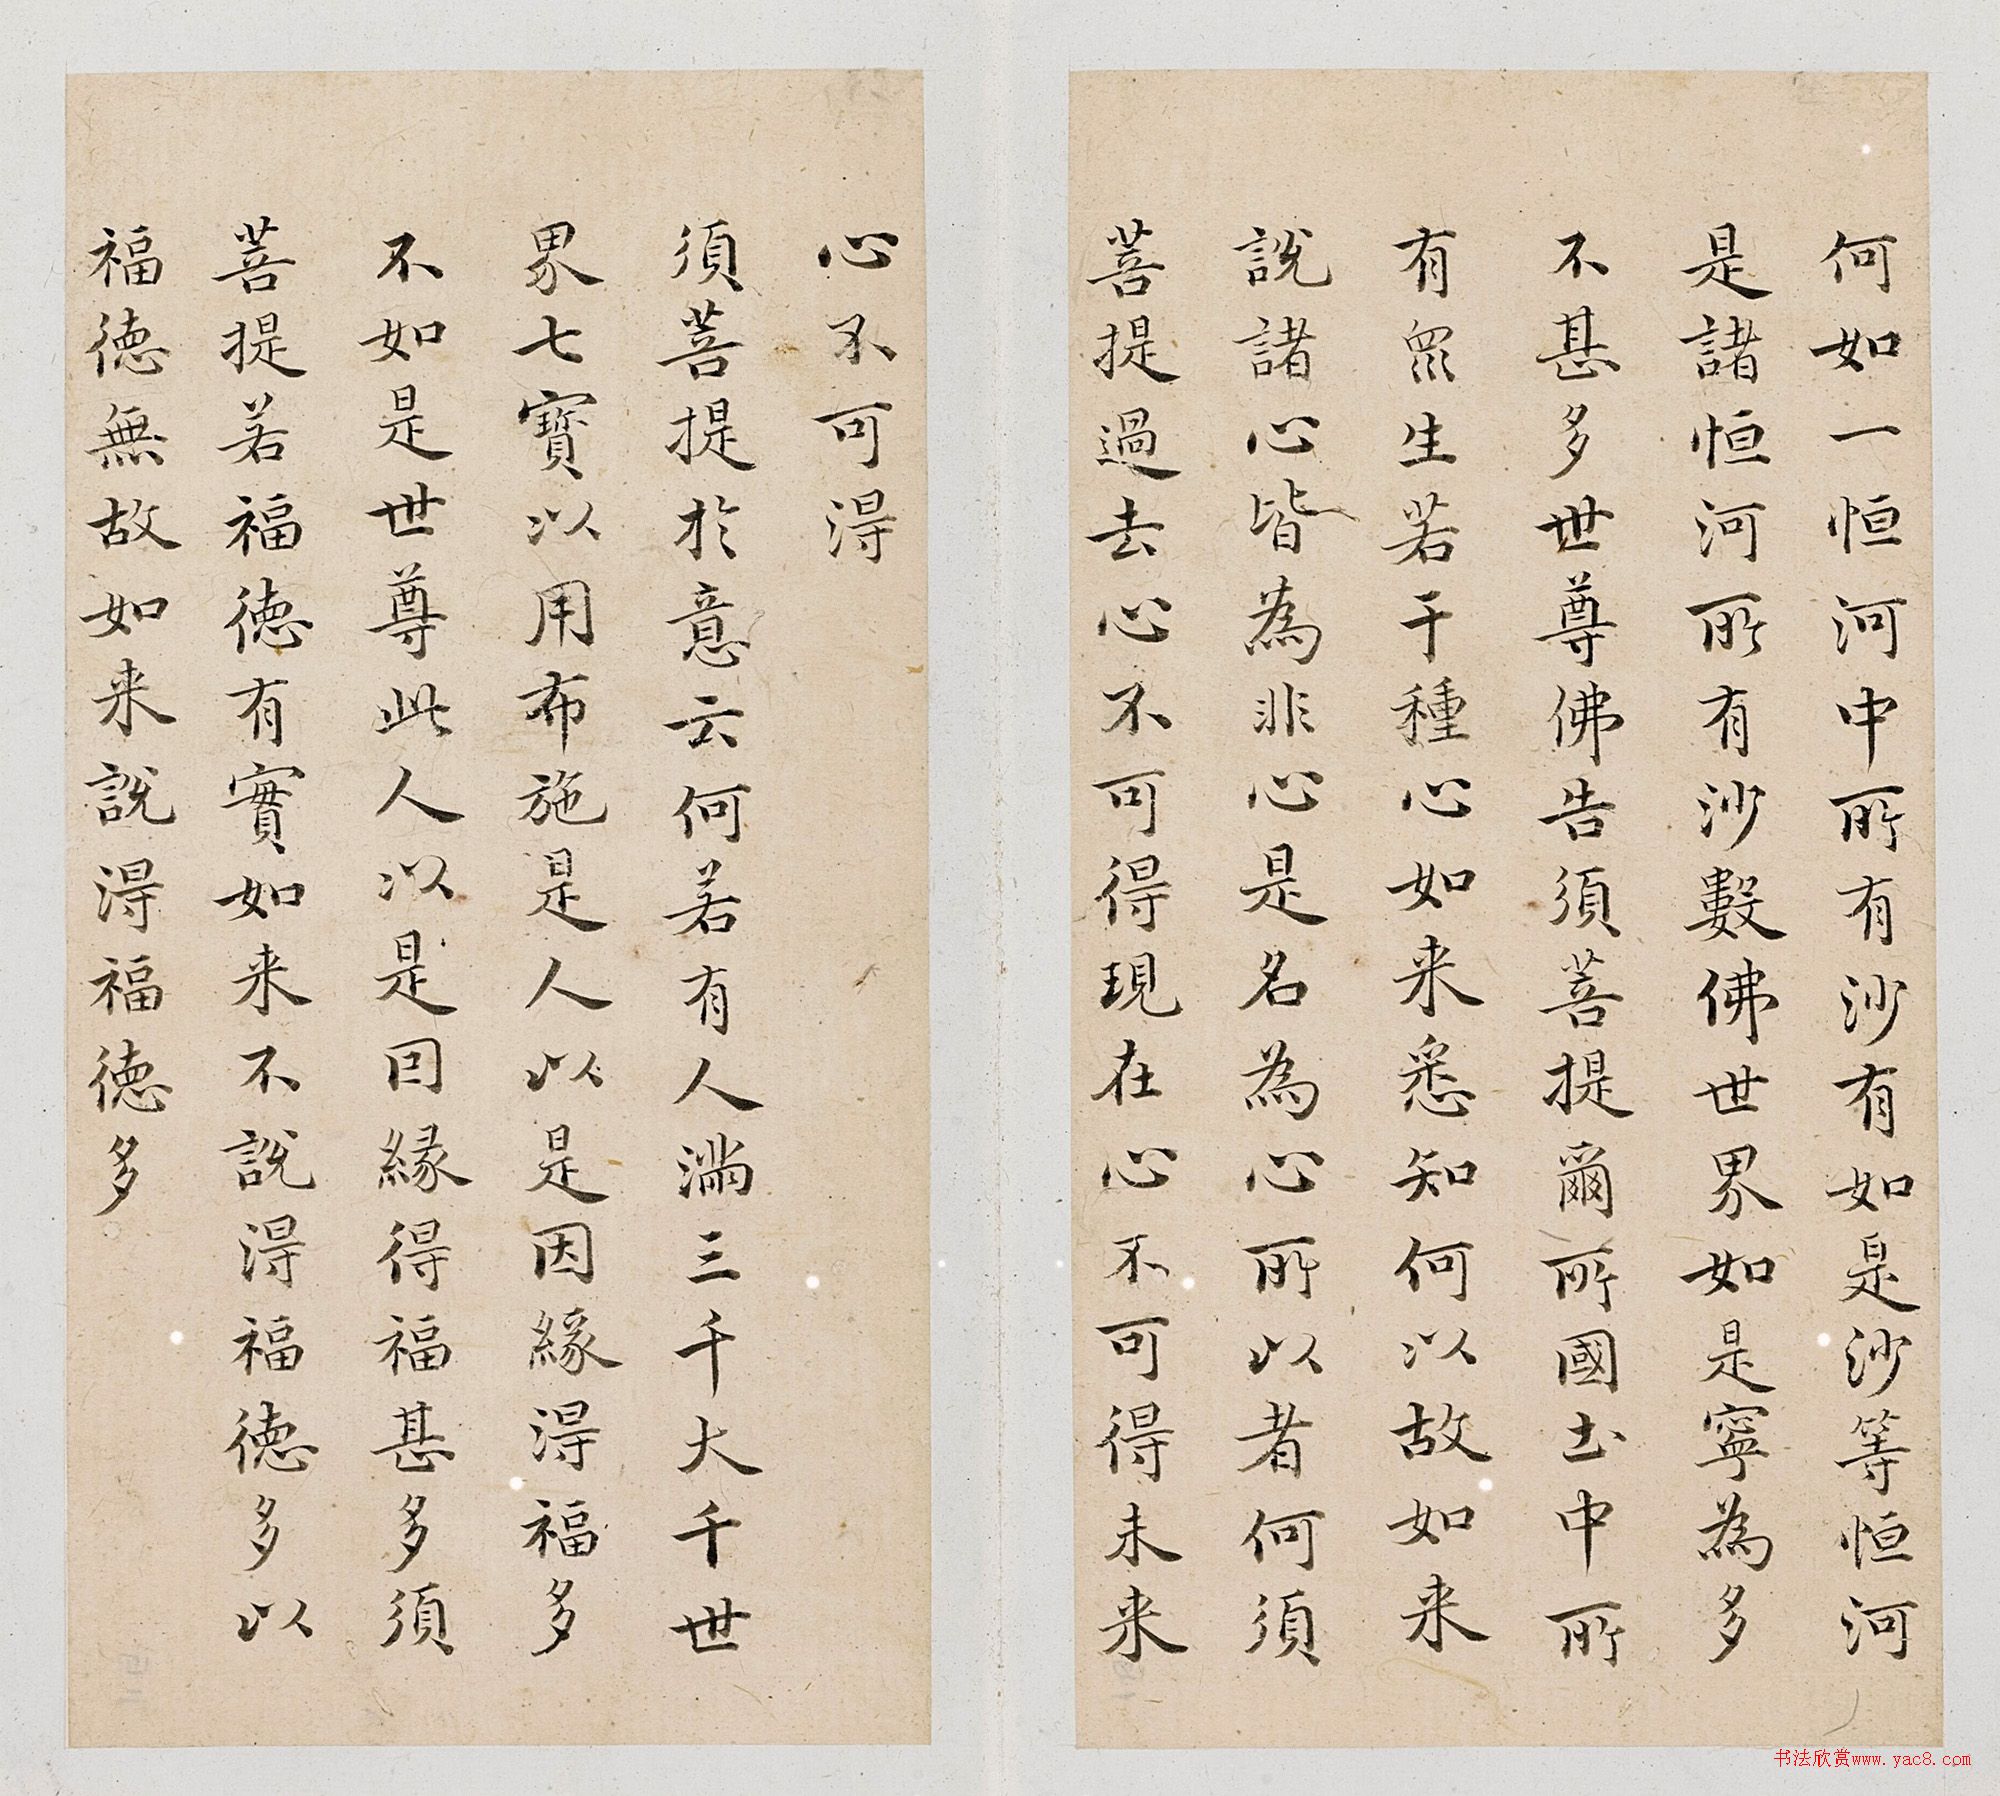 何如一恒河中所有沙有如是沙等恒河
是諸恒河所有沙數佛世界如是寧為多
不甚多世尊佛告須菩提爾所國土中所
有眾生若干種心如来悉知何以故如来
說諸心皆為非心是名為心所以者何須
菩提過去心不可得現在心不可得未来
心不可得
須菩提於意云何若有人滿三千大千世
界七寶以用布施是人以是因緣得福多
不如是世尊此人以是因緣得福甚多須
菩提若福德有實如来不說得福德多以
福德無故如来說得福德多
书法欣赏www.yac8.com